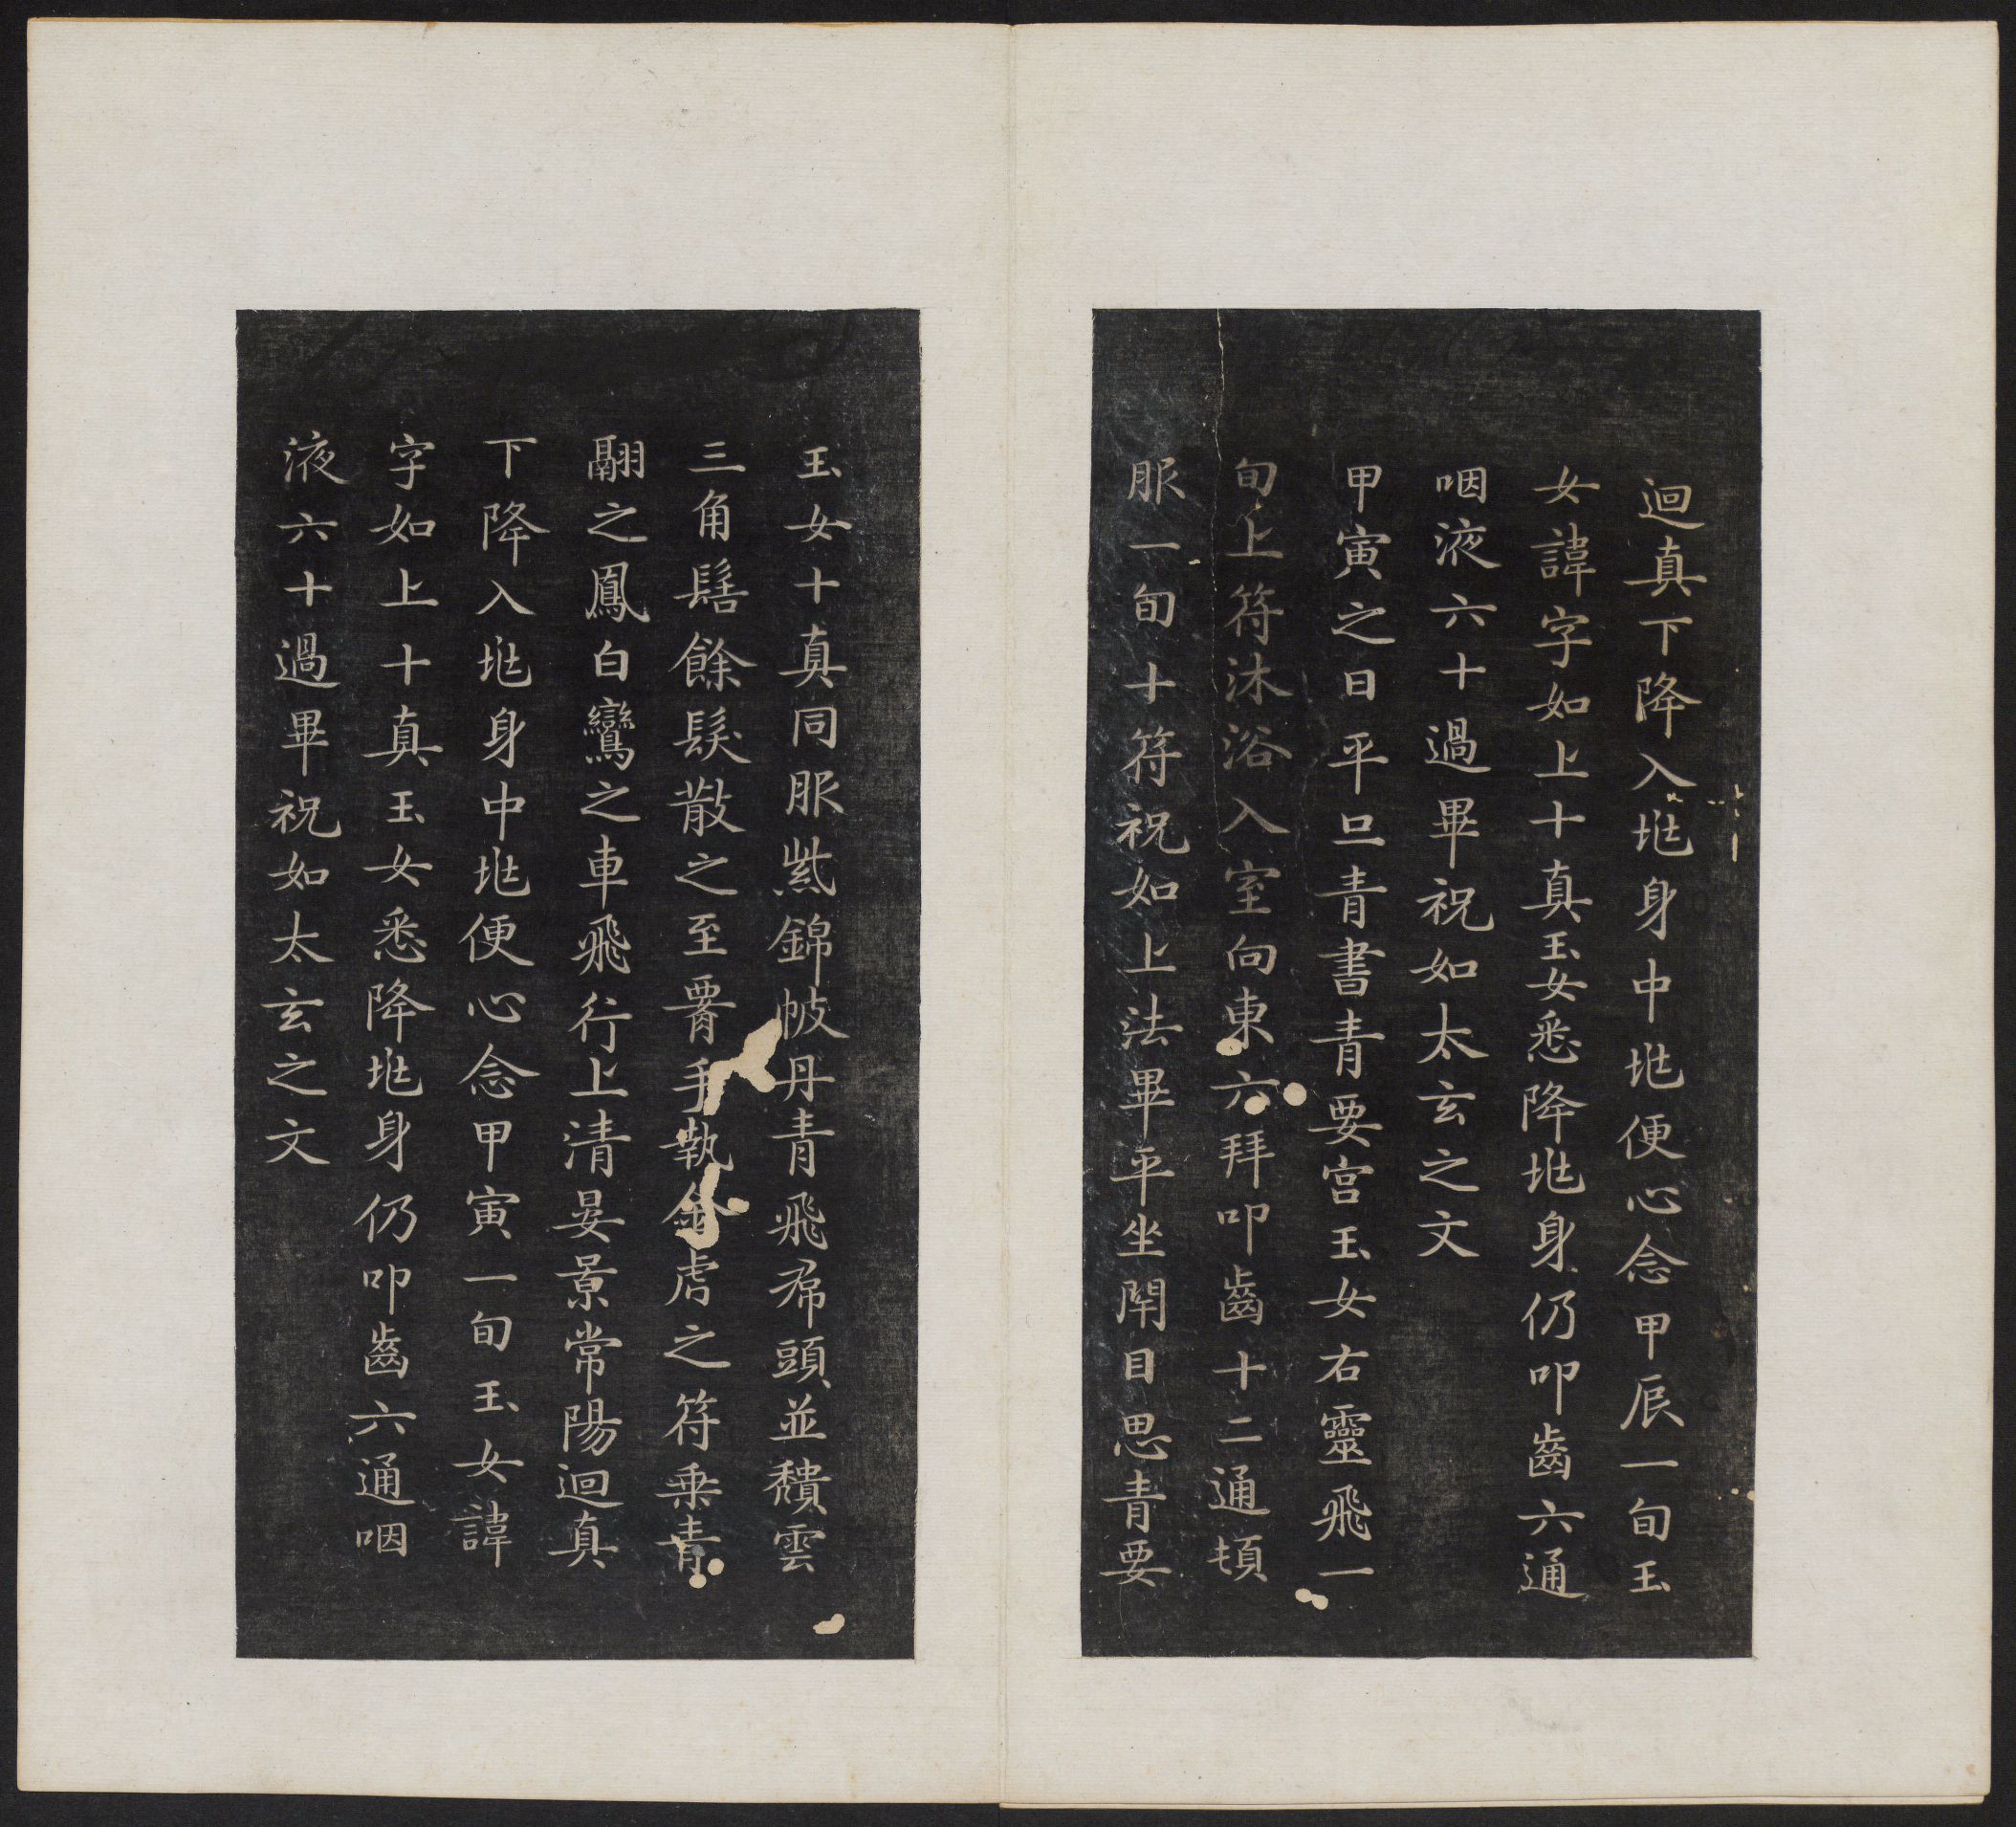 迴真下降入兆身中兆便心念甲辰一旬玉
女諱字如上十真玉女悉降兆身仍叩齒六通
咽液六十過畢祝如太玄之文
甲寅之日平旦青書青要宮玉女右靈飛一
旬上符沐浴入室向東六拜叩齒十二通頓
服一旬十符祝如上法畢平坐閉目思青要
玉女十真同服紫錦帔丹青飛帬頭並頽雲
三角髻餘髮散之至要手執金虎之符乘青
翮之鳳白鸞之車飛行上清晏景常陽迴真
下降入兆身中兆便心念甲寅一旬玉女諱
字如上十真玉女悉降兆身仍叩齒六通咽
液六十過畢祝如太玄之文